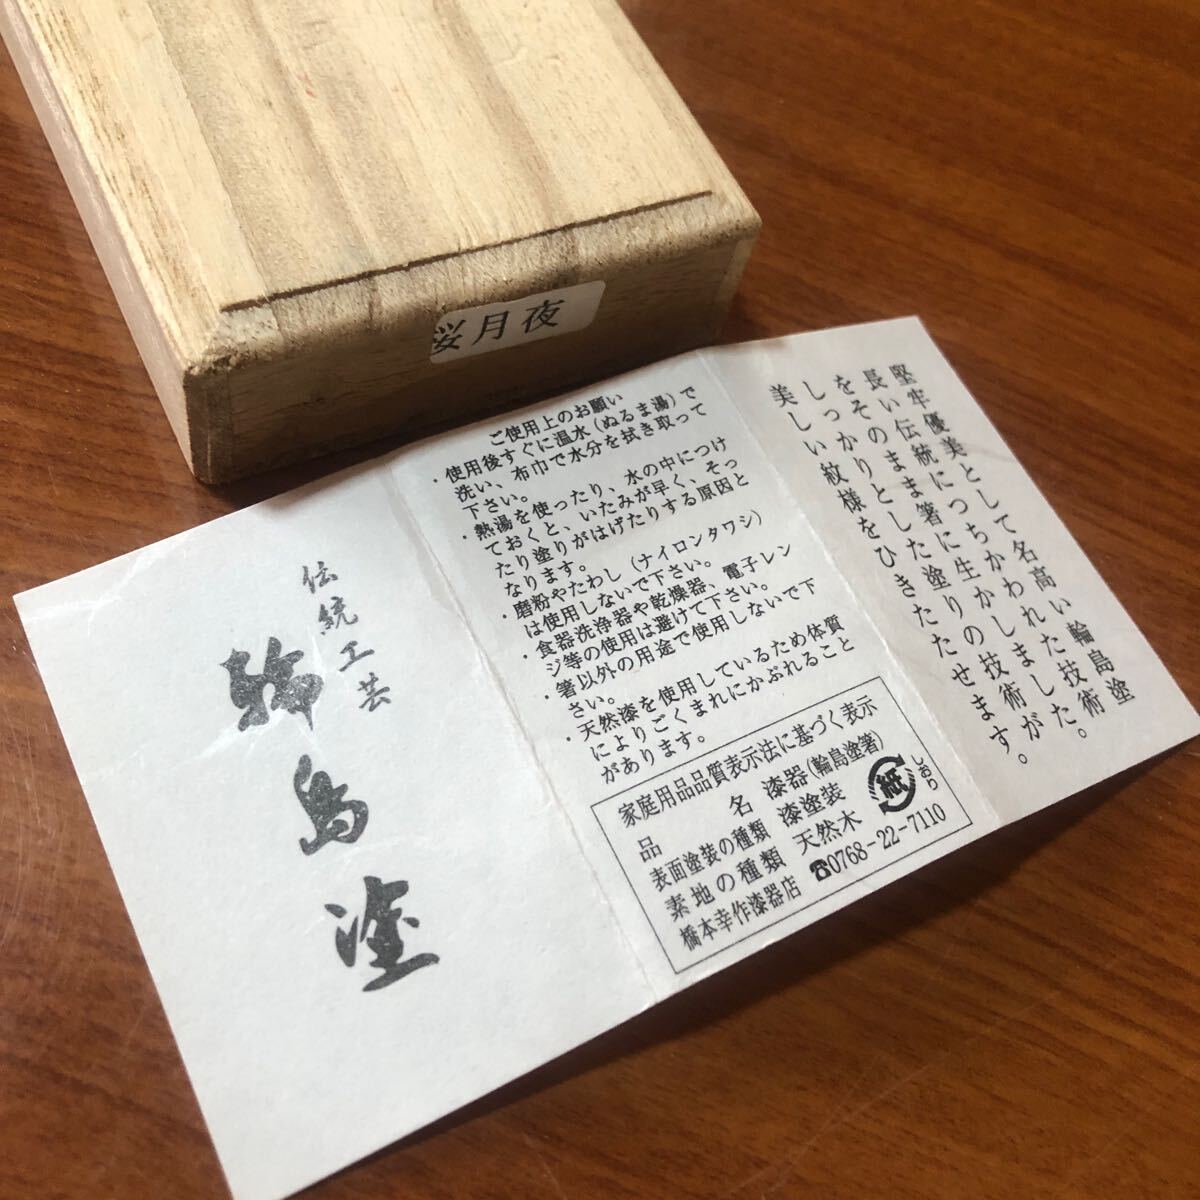 桜月夜
伝統工芸
輪島塗
ご使用上のお願い
・使用後すぐに温水(ぬるま湯)で
洗い、布巾で水分を拭き取って
下さい。
・熱湯を使ったり、水の中につけ
ておくと、いたみが早く、そっ
たり塗りがはげたりする原因と
なります。
・磨粉やたわし(ナイロンタワシ)
は使用しないで下さい。
・食器洗浄器や乾燥器、電子レン
ジ等の使用は避けて下さい。
・箸以外の用途で使用しないで下
さい。
・天然漆を使用しているため体質
によりごくまれにかぶれること
があります。
家庭用品品質表示法に基づく表示
品名 漆器(輪島塗箸)
表面塗装の種類 漆塗装
素地の種類 天然木
橋本幸作漆器店 ☎0768-22-7110
紙
しおり
堅牢優美として名高い輪島塗
長い伝統につちかわれた技術
をそのまま箸に生かしました。
しっかりとした塗りの技術が
美しい紋様をひきたたせます。